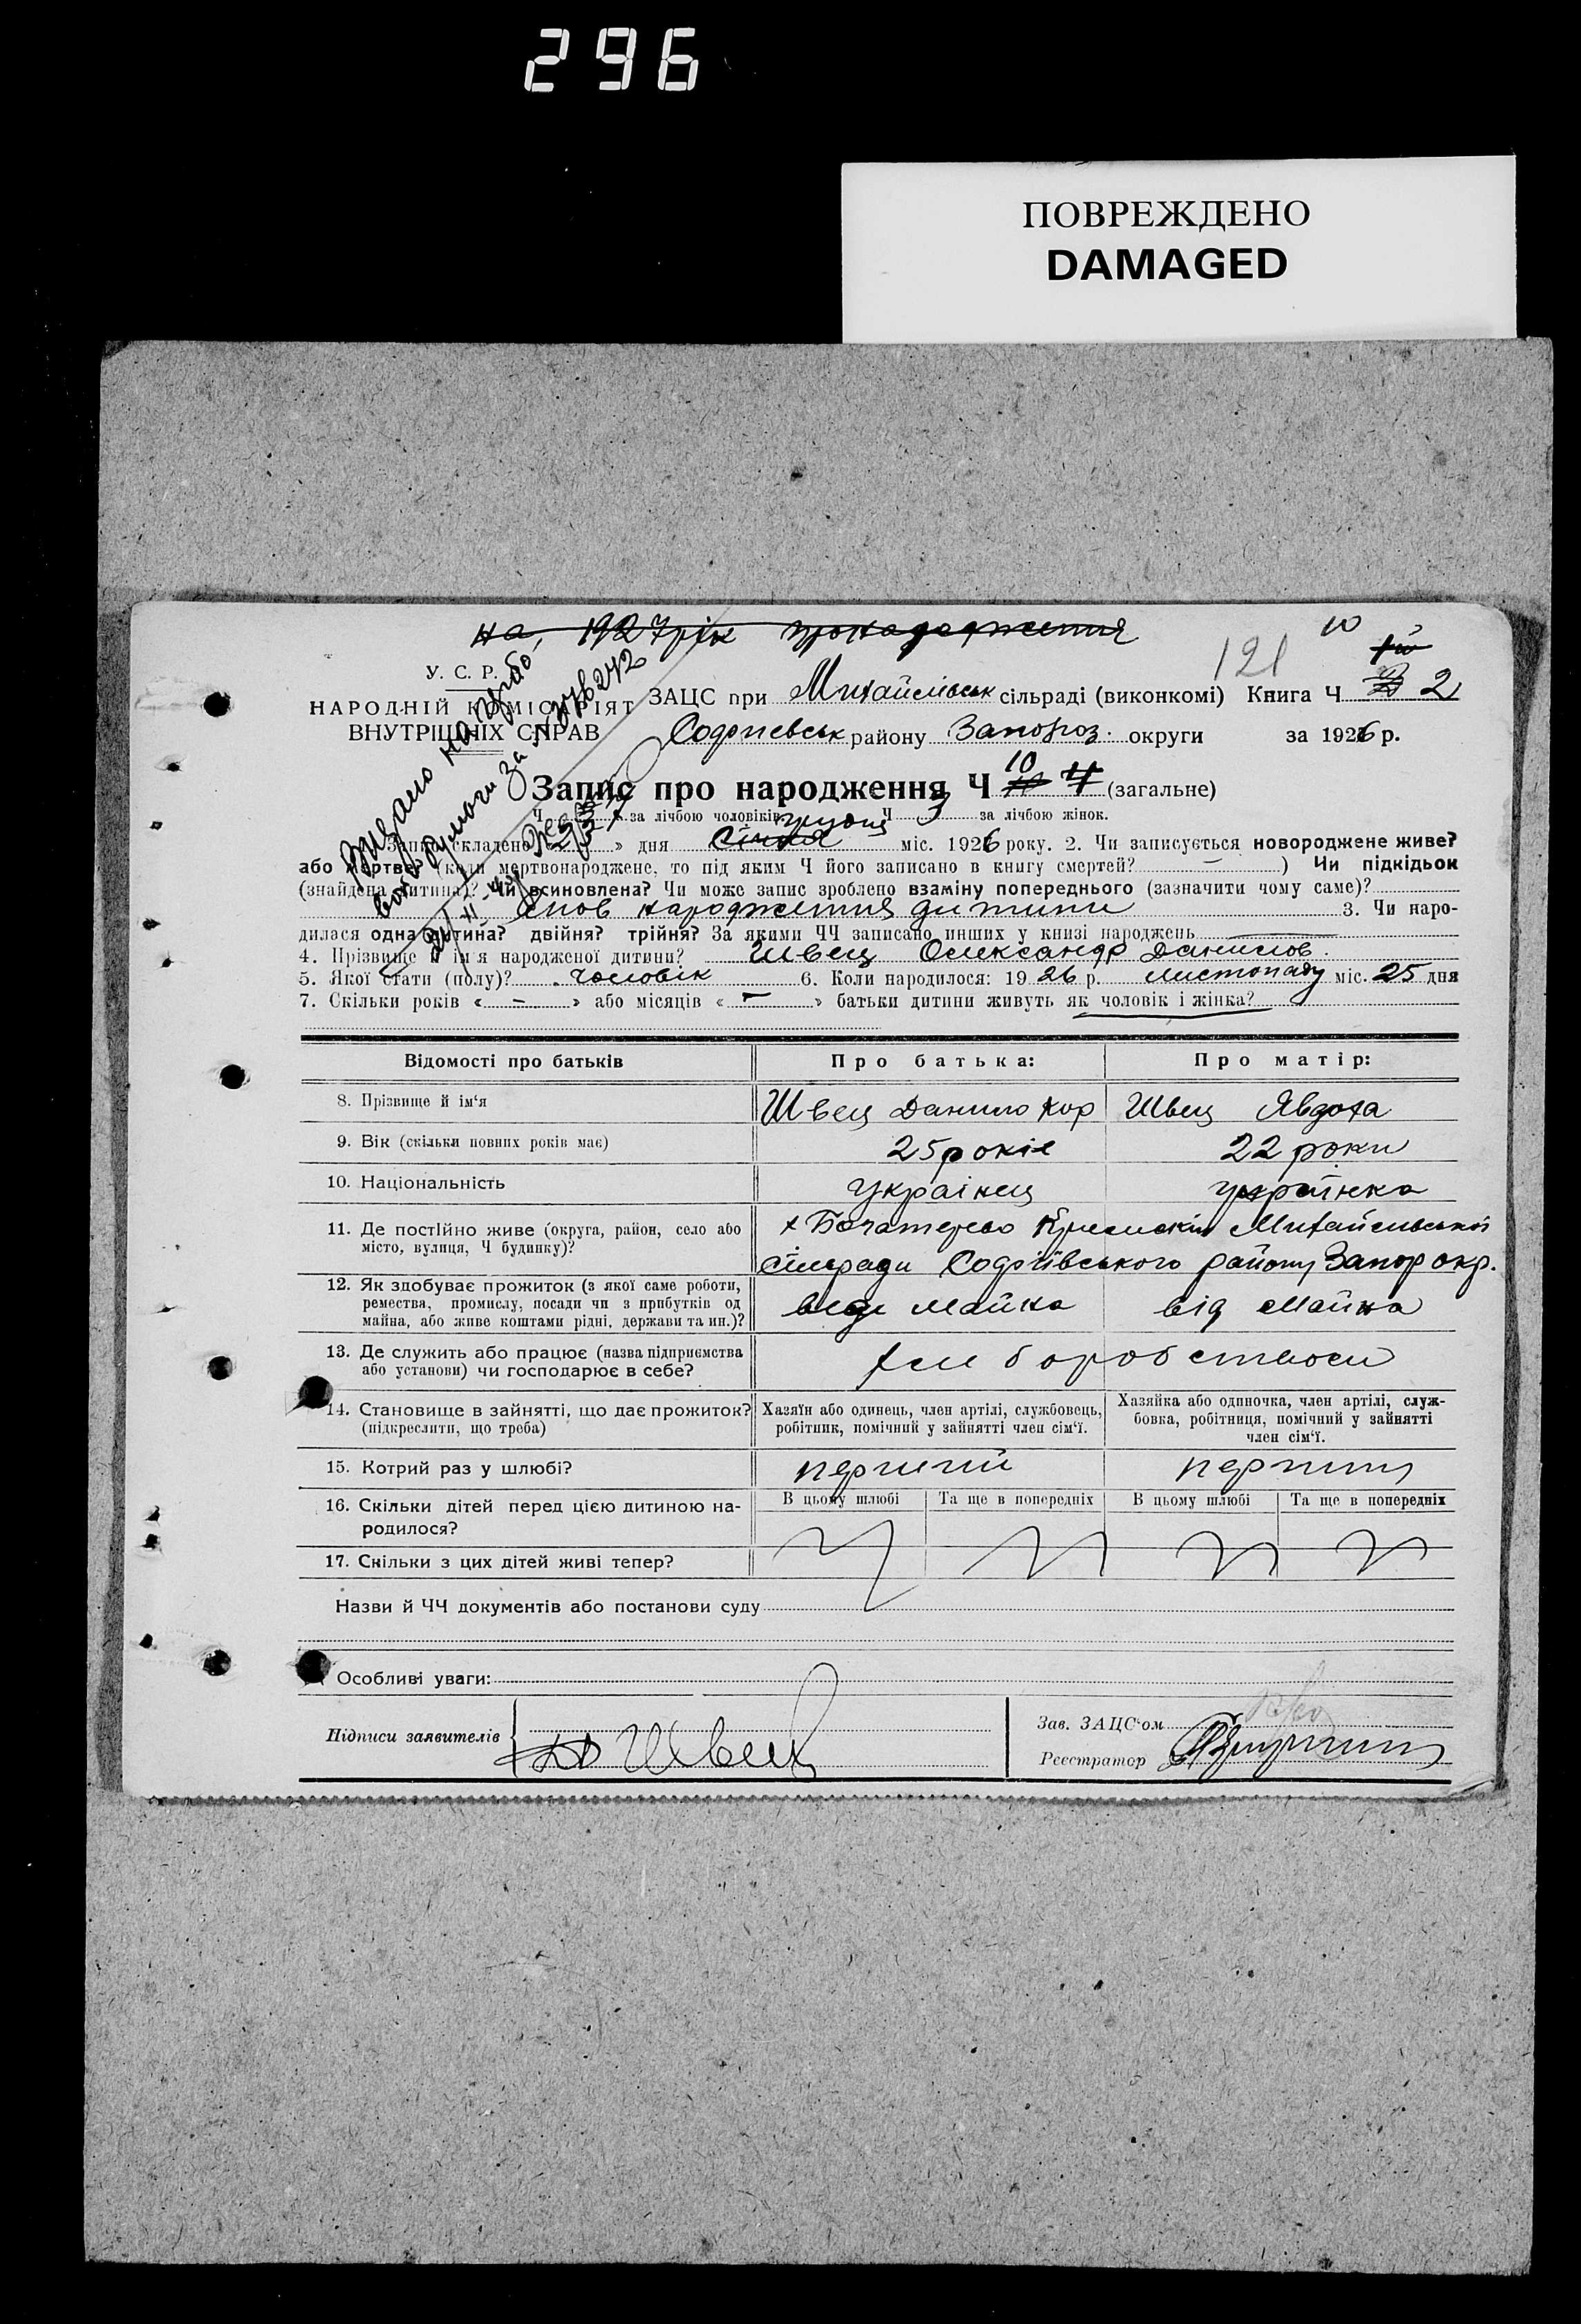 296
ПОВРЕЖДЕНО
DAMAGED
на 1927 рік
10
121
У. С. Р. Р.
НАРОДНІЙ КОМІСАРІЯТ
ВНУТРІШНІХ СПРАВ
ЗАЦС при Михайлівськ сільраді (виконкомі) Книга Ч 2
Софиевськ району Запороз. округи за 1926 р.
Запис про народження Ч 10 4 (загальне)
Ч за лічбою чоловіків Ч 3 за лічбою жінок.
Запис складено « » дня грудня міс. 1926 року. 2. Чи записується новороджене живе?
або мертве? (коли мертвонароджене, то під яким Ч його записано в книгу смертей? — ) Чи підкідьок
(знайдена дитина)? Чи всиновлена? Чи може запис зроблено взаміну попереднього (зазначити чому саме)?
народження дитини 3. Чи наро-
дилася одна дитина? двійня? трійня? За якими ЧЧ записано инших у книзі народжень
4. Прізвище й ім'я народженої дитини? Швец Олександр Данилов.
5. Якої стати (полу)? чоловік 6. Коли народилося: 1926 р. листопаду міс. 25 дня
7. Скільки років « — » або місяців « — » батьки дитини живуть як чоловік і жінка?
Відомості про батьків Про батька: Про матір:
8. Прізвище й ім'я Швец Данило Кор Швец Явдоха
9. Вік (скільки повних років має) 25 років 22 роки
10. Національність Українец українка
11. Де постійно живе (округа, район, село або місто, вулиця, Ч будинку)? х Богатирево Михайлівської
сільради Софіївського району Запор окр.
12. Як здобуває прожиток (з якої саме роботи, ремества, промислу, посади чи з прибутків од майна, або живе коштами рідні, держави та ин.)? майна від майна
13. Де служить або працює (назва підприємства або установи) чи господарює в себе? хлиборобством
14. Становище в зайнятті, що дає прожиток? (підкреслити, що треба) Хазяїн або одинець, член артілі, службовець, робітник, помічний у зайнятті член сім'ї. Хазяйка або одиночка, член артілі, служ-бовка, робітниця, помічний у зайнятті член сім'ї.
15. Котрий раз у шлюбі? перший перший
16. Скільки дітей перед цією дитиною на-родилося? В цьому шлюбі Та ще в попередніх В цьому шлюбі Та ще в попередніх
17. Скільки з цих дітей живі тепер?
Назви й ЧЧ документів або постанови суду
Особливі уваги:
Підписи заявителів Д Швец
Зав. ЗАЦС'ом
Реєстратор